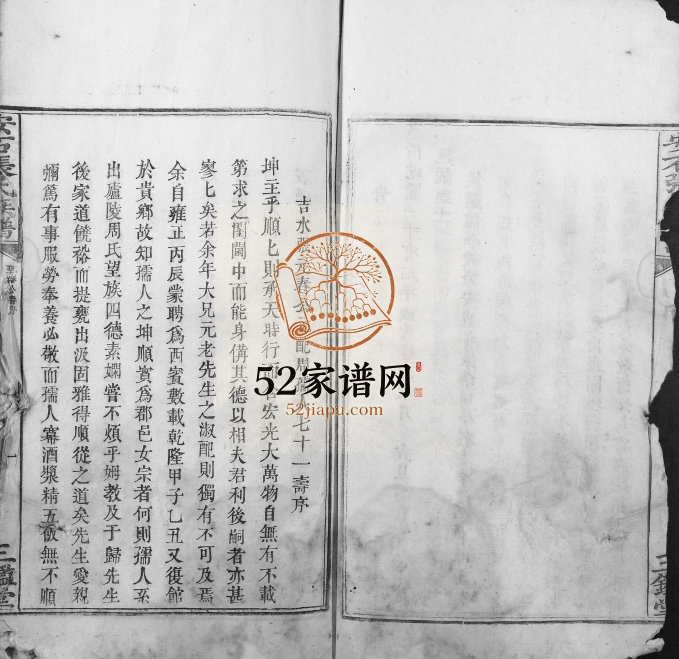 吉水張元春配周七十一壽序
坤主乎順匕則承天時行而宏光大萬物自無有不載
第求之閨閫中而能身備其德以相夫君利後嗣者亦甚
寥匕矣若余年大兄元老先生之淑配則獨有不可及焉
余自雍正丙辰蒙聘爲西賓數載乾隆甲子乙丑又復館
於貴鄉故知孺人之坤順實爲郡邑女宗者何則孺人系
出廬陵周氏望族四德素嫻嘗不煩乎姆教及于歸先生
後家道饒裕而提甕出汲固雅得順從之道矣先生愛親
彌篤有事服勞奉養必敬而孺人冪酒漿精五飯無不順
張氏族譜
壽序
一
三鑑堂
52家谱网
52jiapu.com